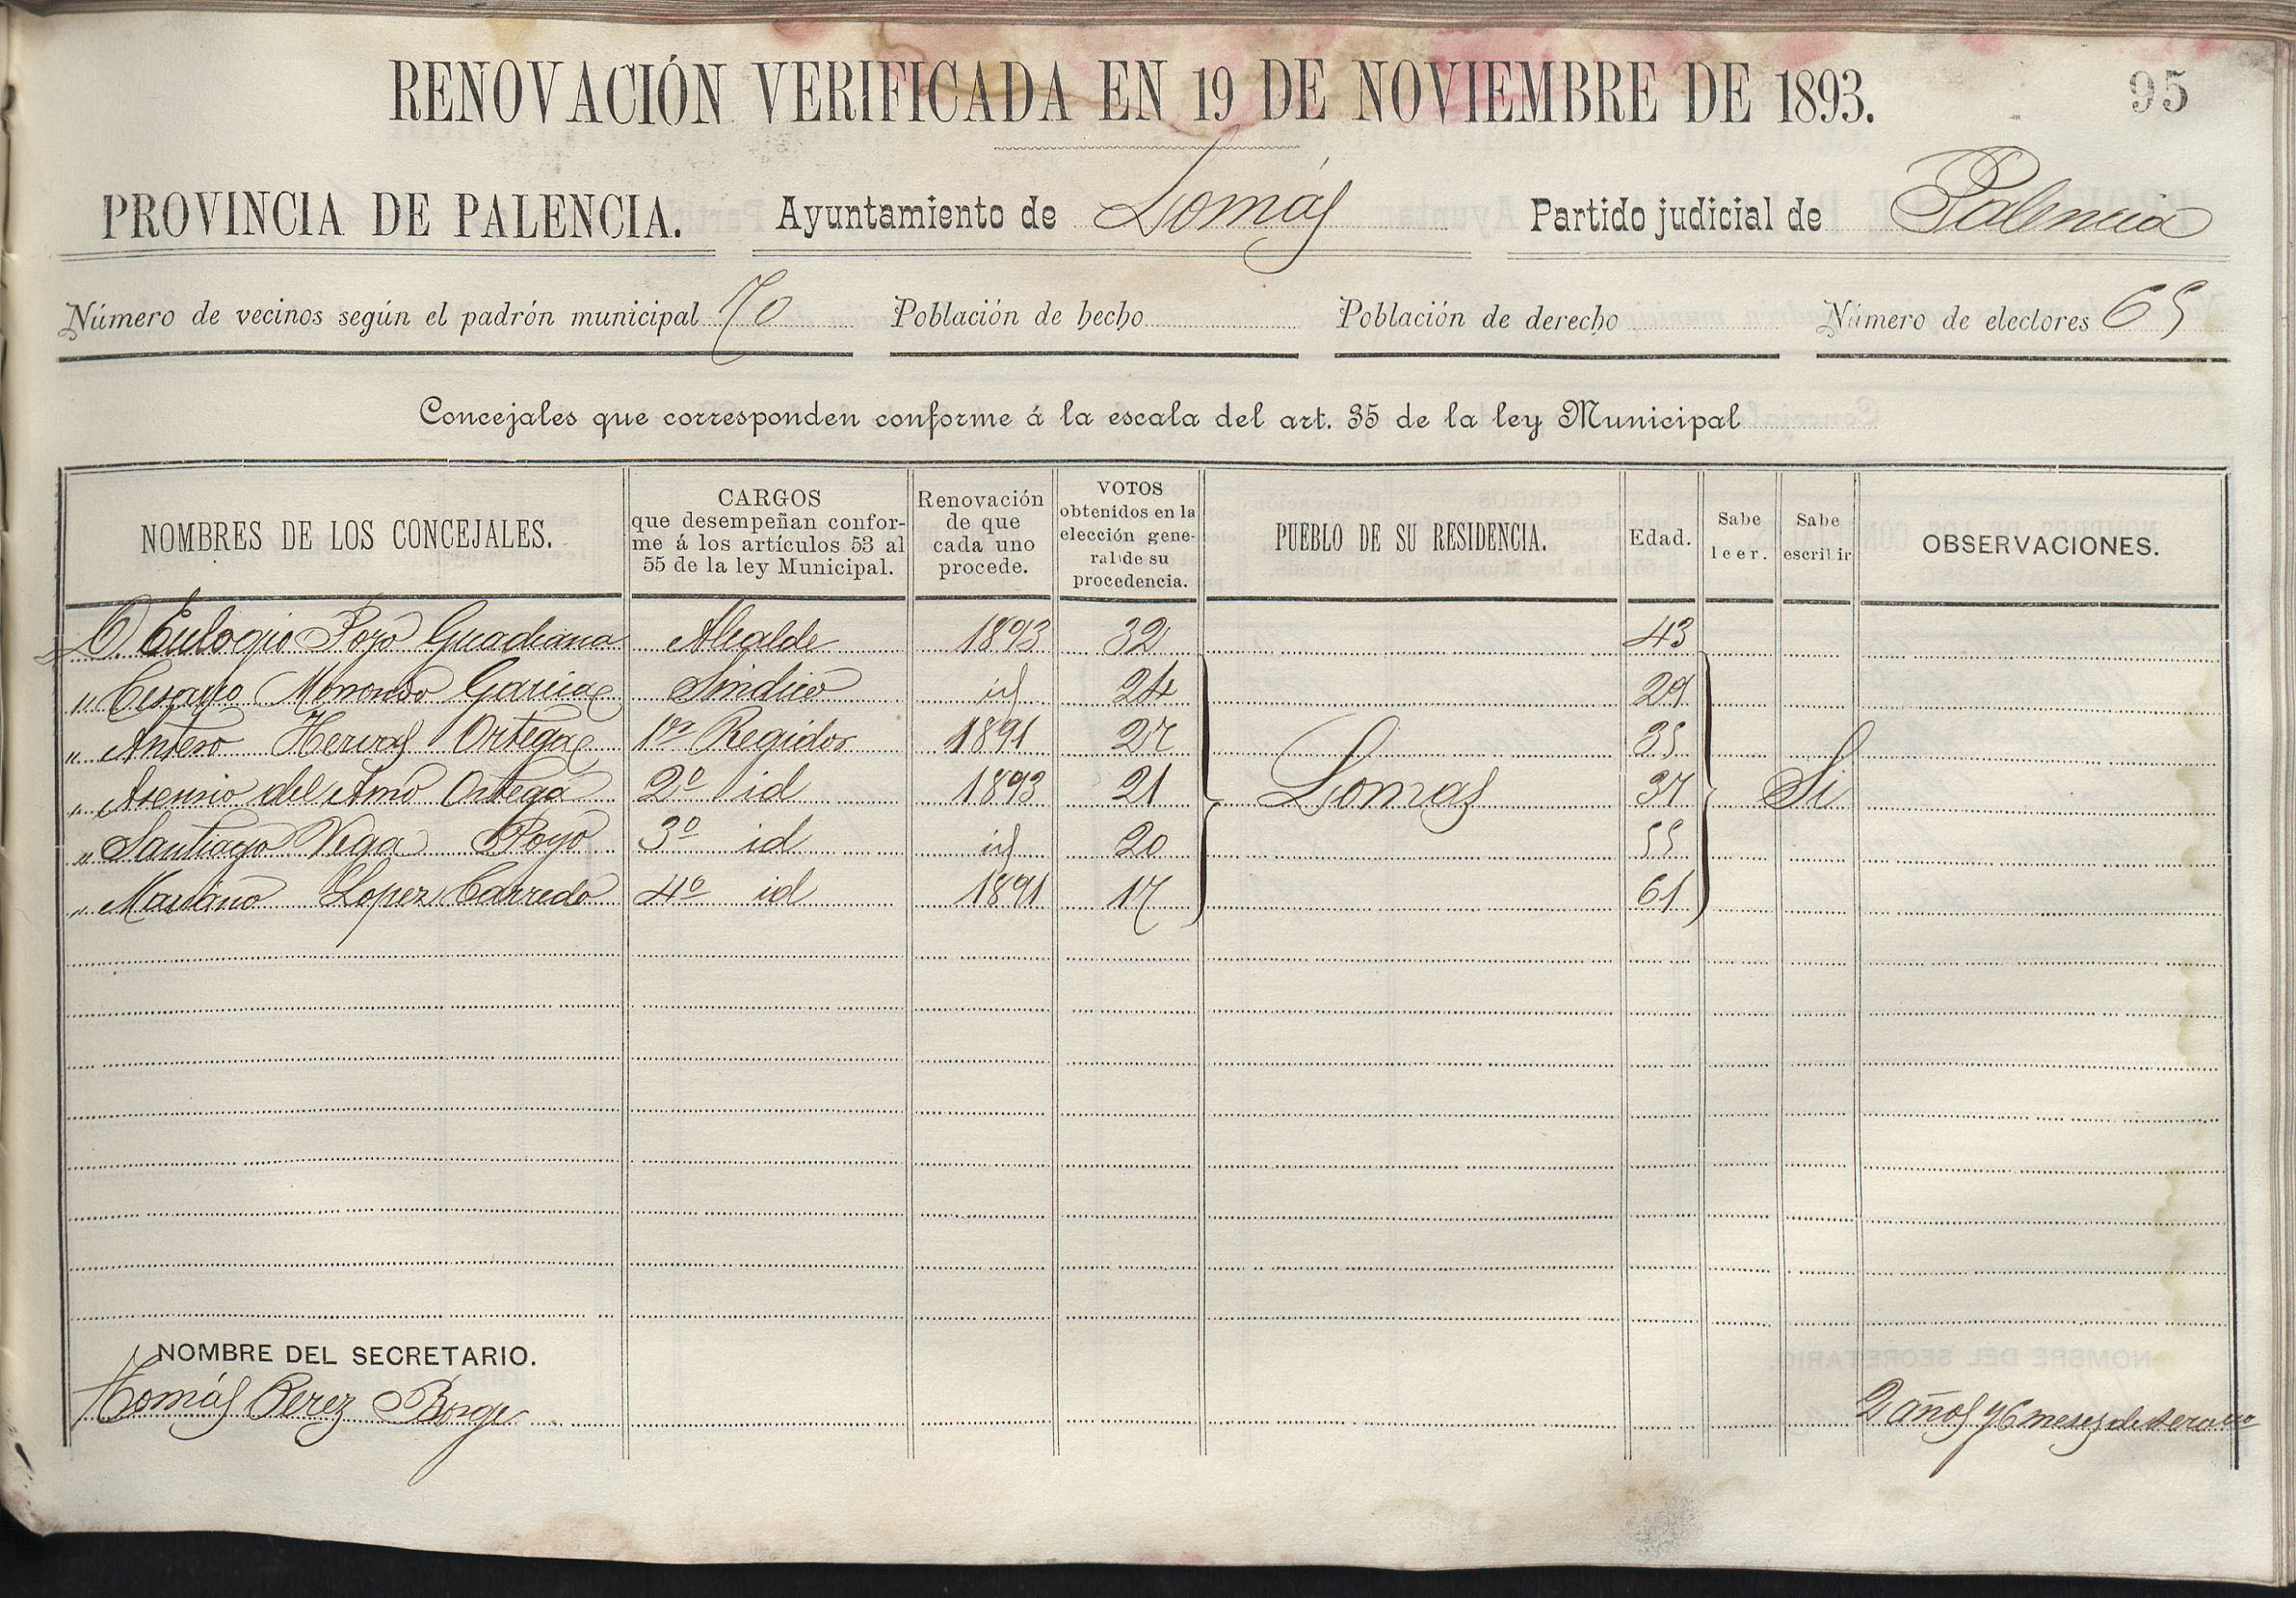 RENOVACIÓN VERIFICADA EN 19 DE NOVIEMBRE DE 1893. 95
PROVINCIA DE PALENCIA. Ayuntamiento de Lomás Partido judicial de Palencia
Número de vecinos según el padrón municipal 70 Población de hecho Población de derecho Número de electores 65
Concejales que corresponden conforme á la escala del art. 35 de la ley Municipal
NOMBRES DE LOS CONCEJALES. CARGOS que desempeñan confor-me á los artículos 53 al 55 de la ley Municipal. Renovación de que cada uno procede. VOTOS obtenidos en la elección gene-ral de su procedencia. PUEBLO DE SU RESIDENCIA. Edad. Sabe leer. Sabe escribir OBSERVACIONES.
D. Eulogio Pozo Guadiana Alcalde 1893 32 43
" Cesareo García Sindico id 24 29
" Antero Hervas Ortega 1er Regidor 1891 27 35
" Asensio del Amo Ortega 2º id 1893 21 Lomas 37 Si
" Santiago Vega Poyo 3º id id 20 55
" Mariano Lopez Carredo 4º id 1891 17 61
NOMBRE DEL SECRETARIO.
Tomás Perez Borge 2 años y 6 meses de